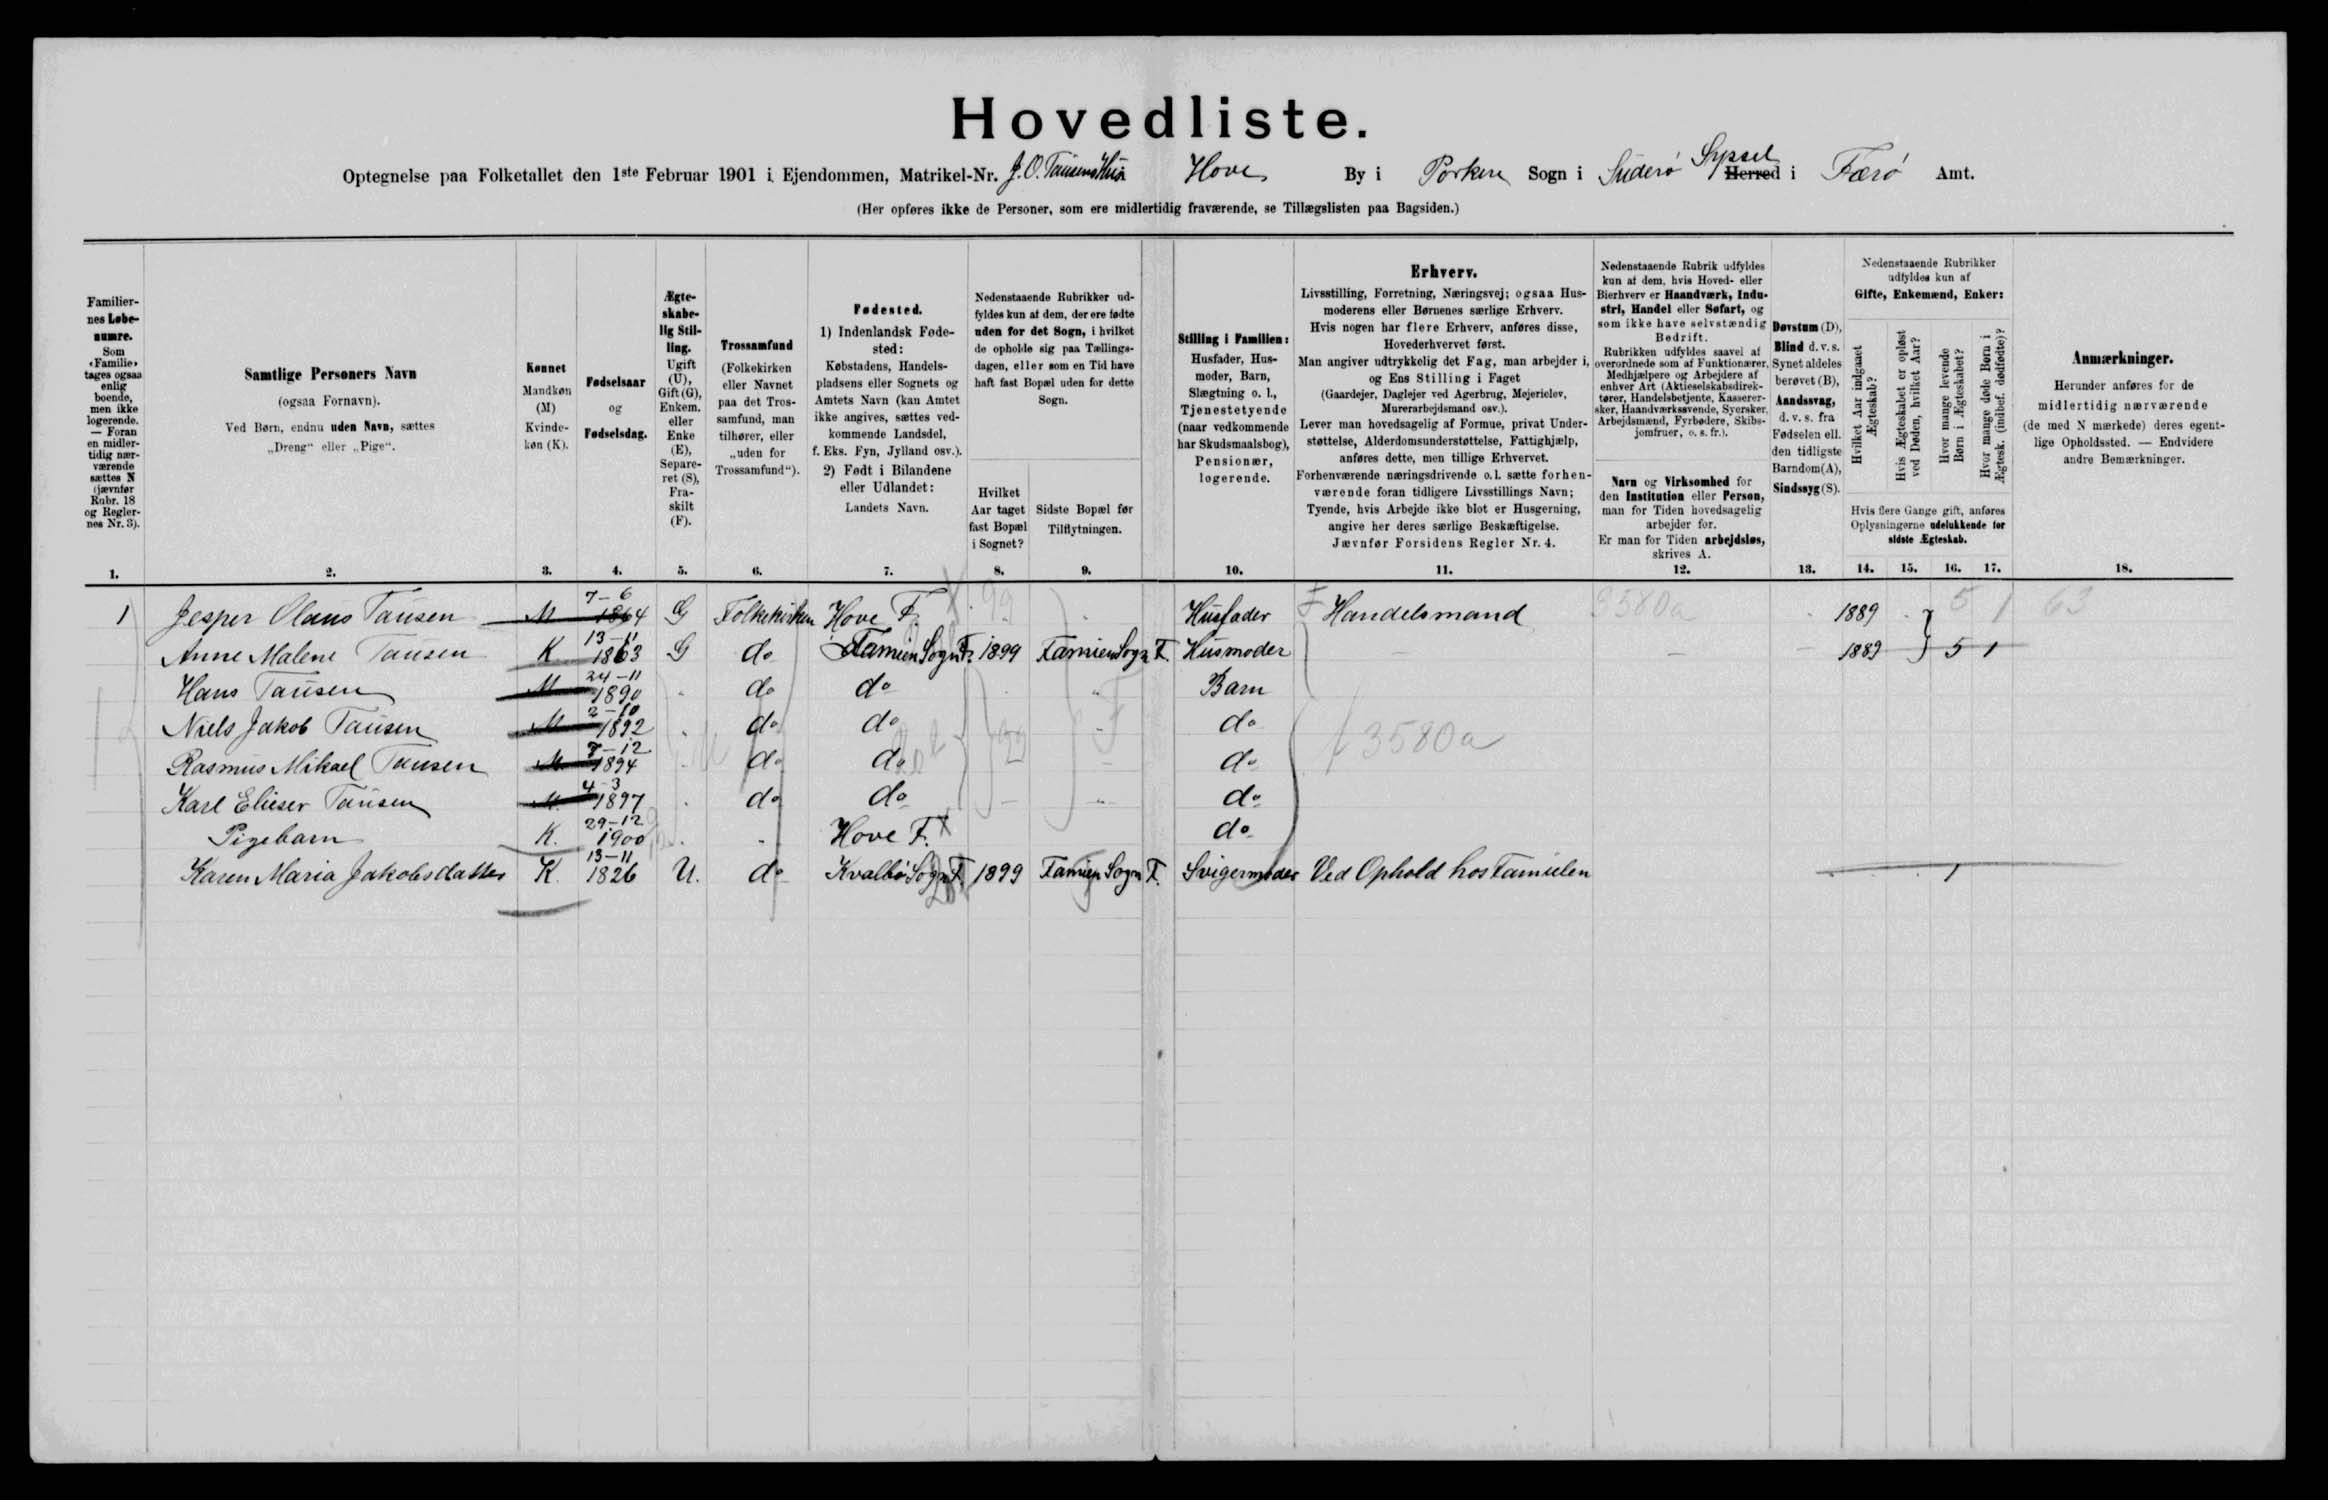 Hovedliste.
Optegnelse paa Folketallet den 1ste Februar 1901 i Ejendommen, Matrikel-Nr. J. O. Tausens Hus Hove By i Porkere Sogn i Suderø Syssel Herred i Færø Amt.
(Her opføres ikke de Personer, som ere midlertidig fraværende, se Tillægslisten paa Bagsiden.)
Familier-
nes Løbe-
numre.
Som
«Familie»
tages ogsaa
enlig
boende,
men ikke
logerende.
— Foran
en midler-
tidig nær-
værende
sættes N
(jævnfør
Rubr. 18
og Regler-
nes Nr. 3).
1.
Samtlige Personers Navn
(ogsaa Fornavn).
Ved Børn, endnu uden Navn, sættes
„Dreng“ eller „Pige“.
2.
Kønnet
Mandkøn
(M)
Kvinde-
køn (K).
3.
Fødselsaar
og
Fødselsdag.
4.
Ægte-
skabe-
lig Stil-
ling.
Ugift
(U),
Gift (G),
Enkem.
eller
Enke
(E),
Separe-
ret (S),
Fra-
skilt
(F).
5.
Trossamfund
(Folkekirken
eller Navnet
paa det Tros-
samfund, man
tilhører, eller
„uden for
Trossamfund“).
6.
Fødested.
1) Indenlandsk Føde-
sted:
Købstadens, Handels-
pladsens eller Sognets og
Amtets Navn (kan Amtet
ikke angives, sættes ved-
kommende Landsdel,
f. Eks. Fyn, Jylland osv.).
2) Født i Bilandene
eller Udlandet:
Landets Navn.
7.
Nedenstaaende Rubrikker ud-
fyldes kun af dem, der ere fødte
uden for det Sogn, i hvilket
de opholde sig paa Tællings-
dagen, eller som en Tid have
haft fast Bopæl uden for dette
Sogn.
Hvilket
Aar taget
fast Bopæl
i Sognet?
8.
Sidste Bopæl før
Tilflytningen.
9.
Stilling i Familien:
Husfader, Hus-
moder, Barn,
Slægtning o. l.,
Tjenestetyende
(naar vedkommende
har Skudsmaalsbog),
Pensionær,
logerende.
10.
Erhverv.
Livsstilling, Forretning, Næringsvej; ogsaa Hus-
moderens eller Børnenes særlige Erhverv.
Hvis nogen har flere Erhverv, anføres disse,
Hovederhvervet først.
Man angiver udtrykkelig det Fag, man arbejder i,
og Ens Stilling i Faget
(Gaardejer, Daglejer ved Agerbrug, Mejerielev,
Murerarbejdsmand osv.).
Lever man hovedsagelig af Formue, privat Under-
støttelse, Alderdomsunderstøttelse, Fattighjælp,
anføres dette, men tillige Erhvervet.
Forhenværende næringsdrivende o. l. sætte forhen-
værende foran tidligere Livsstillings Navn;
Tyende, hvis Arbejde ikke blot er Husgerning,
angive her deres særlige Beskæftigelse.
Jævnfør Forsidens Regler Nr. 4.
11.
Nedenstaaende Rubrik udfyldes
kun af dem, hvis Hoved- eller
Bierhverv er Haandværk, Indu-
stri, Handel eller Søfart, og
som ikke have selvstændig
Bedrift.
Rubrikken udfyldes saavel af
overordnede som af Funktionærer,
Medhjælpere og Arbejdere af
enhver Art (Aktieselskabsdirek-
tører, Handelsbetjente, Kasserer-
sker, Haandværkssvende, Syersker,
Arbejdsmænd, Fyrbødere, Skibs-
jomfruer, o. s. fr.).
Navn og Virksomhed for
den Institution eller Person,
man for Tiden hovedsagelig
arbejder for.
Er man for Tiden arbejdsløs,
skrives A.
12.
Døvstum (D),
Blind d. v. s.
Synet aldeles
berøvet (B),
Aandssvag,
d. v. s. fra
Fødselen ell.
den tidligste
Barndom (A),
Sindssyg (S).
13.
Nedenstaaende Rubrikker
udfyldes kun af
Gifte, Enkemænd, Enker:
Hvilket Aar indgaaet
Ægteskab?
Hvis Ægteskabet er opløst
ved Døden, hvilket Aar?
Hvor mange levende
Børn i Ægteskabet?
Hvor mange døde Børn i
Ægtesk. (indbef. dødfødte)?
Hvis flere Gange gift, anføres
Oplysningerne udelukkende for
sidste Ægteskab.
14. 15. 16. 17.
Anmærkninger.
Herunder anføres for de
midlertidig nærværende
(de med N mærkede) deres egent-
lige Opholdssted. — Endvidere
andre Bemærkninger.
18.
1 Jesper Olaus Tausen M 7-6 1864 G Folkekirken Hove F. 99 Husfader F Handelsmand 3580a 1889 5 1 63
Anne Malene Tausen K 13-11 1863 G do Famien Sogn F. 1899 Famien Sogn F. Husmoder — — — 1889 } 5 1
Hans Tausen M 24-11 1890 do do Barn
Niels Jakob Tausen M 2-10 1892 do do do
Rasmus Mikael Tausen M 7-12 1894 do do do f 3580a
Karl Elieser Tausen M. 4-3 1897 do do do
Pigebarn K. 29-12 1900 Hove F. do
Karen Maria Jakobsdatter K. 13-11 1826 U. do Kvalbø Sogn F. 1899 Famien Sogn F. Svigermoder Ved Ophold hos Familien 1